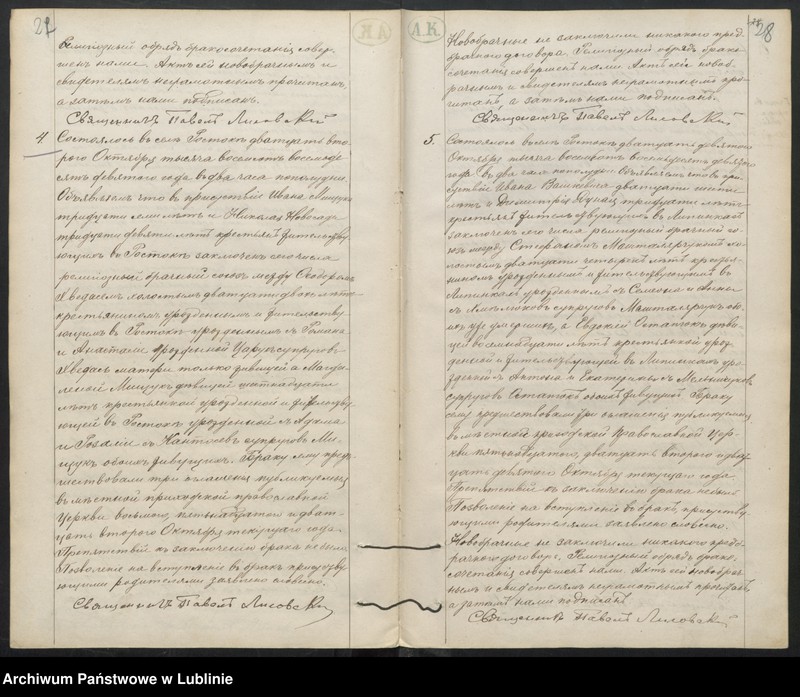 28
Религіозный обрядъ бракосочетанія совер-
шенъ нами. Актъ сей новобрачнымъ и
свидетелямъ неграмотнымъ прочитанъ,
а затѣмъ нами подписанъ.
Священникъ Павелъ Лисовскій
4. Состоялось въ селѣ Ростокъ двадцать вто-
рого Октября тысяча восемьсотъ восемьде-
сятъ девятого года въ два часа пополудни.
Объявляемъ что въ присутствіи Ивана Мищука
тридцати семи лѣтъ и Николая
тридцати девяти лѣтъ крестьянъ жительству-
ющихъ въ Ростокѣ заключенъ сего числа
религіозный брачный союзъ между Ѳеодоромъ
холостымъ двадцати двухъ лѣтъ
крестьяниномъ урожденнымъ и жительству-
ющимъ въ Ростокѣ урожденнымъ съ Романа
и Анастасіи урожденной супруговъ
матери только живущей а Магда-
леной Мищукъ дѣвицей шестнадцати
лѣтъ крестьянкой урожденной и жительству-
ющей въ Ростокѣ урожденной съ Лукаша
и Розаліи съ супруговъ Ми-
щукъ обоихъ живущихъ. Браку сему пред-
шествовали три оглашенія публикуемыя
въ мѣстной приходской православной
Церкви восьмого, пятнадцатого и двад-
цать второго Октября текущаго года.
Препятствій къ заключенію брака не было.
Позволеніе на вступленіе въ бракъ присутству-
ющими родителями заявлено словесно.
Священникъ Павелъ Лисовскій
ЛК
28
Новобрачные не заключили никакого пред-
брачного договора. Религіозный обрядъ брако-
сочетанія совершенъ нами. Актъ сей новоб-
рачнымъ и свидетелямъ неграмотнымъ про-
читанъ, а затѣмъ нами подписанъ.
Священникъ Павелъ Лисовскій
5. Состоялось въ селѣ Ростокъ двадцать девятого
Октября тысяча восемьсотъ восемьдесятъ девятого
года въ два часа пополудни. Объявляемъ что въ при-
сутствіи Ивана двадцати шести
лѣтъ и Димитрія тридцати лѣтъ
крестьянъ жительствующихъ въ Липинкахъ
заключенъ сего числа религіозный брачный со-
юзъ между Стефаномъ Машталярукомъ хо-
лостымъ двадцати четырехъ лѣтъ крестья-
ниномъ урожденнымъ и жительствующимъ въ
Липинкахъ урожденнымъ съ Семеона и
съ супруговъ Машталярукъ
уже умершихъ, а Евдокіей Остапюкъ дѣви-
цей восемнадцати лѣтъ крестьянкой урож-
денной и жительствующей въ Липинкахъ уро-
жденной съ Антона и Екатерины съ Мельничуковъ
супруговъ Остапюкъ обоихъ живущихъ. Браку
сему предшествовали три оглашенія публикуемыя
въ мѣстной приходской Православной Цер-
кви пятнадцатого, двадцать второго и двад-
цать девятого Октября текущаго года.
Препятствій къ заключенію брака не было.
Позволеніе на вступленіе въ бракъ присутству-
ющими родителями заявлено словесно.
Новобрачные не заключили никакого предб-
рачного договора. Религіозный обрядъ брако-
сочетанія совершенъ нами. Актъ сей новобрач-
нымъ и свидетелямъ неграмотнымъ прочитанъ,
а затѣмъ нами подписанъ.
Священникъ Павелъ Лисовскій
Archiwum Państwowe w Lublinie